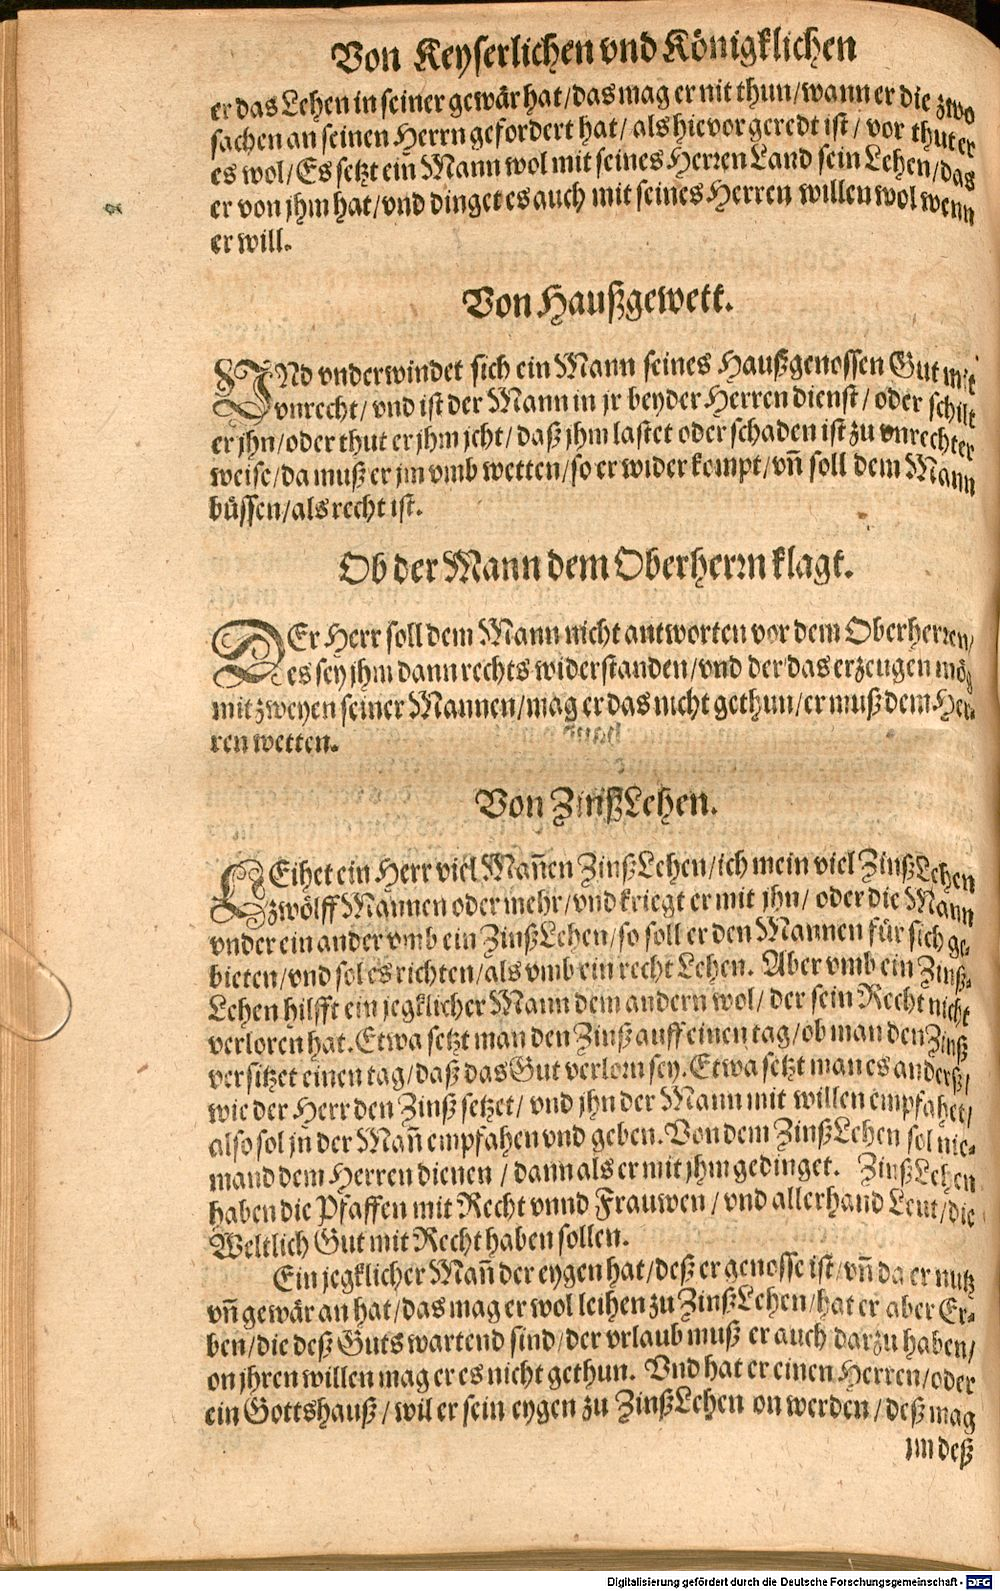 Von Keyserlichen vnd Königklichen
er das Lehen in seiner gewär hat/das mag er nit thun/wann er die zwo
sachen an seinen Herrn gefordert hat/ als hievor geredt ist/ vor thut er
es wol/Es setzt ein Mann wol mit seines Herren Land sein Lehen/das
er von jhm hat/vnd dinget es auch mit seines Herren willen wol wenn
er will.
Von Haußgewett.
VNd vnderwindet sich ein Mann seines Haußgenossen Gut mit
vnrecht/ vnd ist der Mann in jr beyder Herren dienst/ oder schilt
er jhn/oder thut er jhm jcht/ daß jhm lastet oder schaden ist zu vnrechter
weise/da muß er jm vmb wetten/so er wider kompt/vñ soll dem Mann
büssen/als recht ist.
Ob der Mann dem Oberherrn klagt.
DEr Herr soll dem Mann nicht antworten vor dem Oberherren/
es sey jhm dann rechts widerstanden/vnd der das erzeugen mög
mit zweyen seiner Mannen/mag er das nicht gethun/er muß dem Her-
ren wetten.
Von ZinßLehen.
LEihet ein Herr viel Mañen ZinßLehen/ich mein viel ZinßLehen
zwölff Mannen oder mehr/vnd kriegt er mit jhn/ oder die Mann
vnder ein ander vmb ein ZinßLehen/so soll er den Mannen für sich ge-
bieten/vnd sol es richten/als vmb ein recht Lehen. Aber vmb ein Zinß-
Lehen hilfft ein jegklicher Mann dem andern wol/ der sein Recht nicht
verloren hat. Etwa setzt man den Zinß auff einen tag/ob man den Zinß
versitzet einen tag/daß das Gut verlorn sey. Etwa setzt man es anderß/
wie der Herr den Zinß setzet/ vnd jhn der Mann mit willen empfahet/
also sol jn der Mañ empfahen vnd geben. Von dem ZinßLehen sol nie-
mand dem Herren dienen / dann als er mit jhm gedinget. ZinßLehen
haben die Pfaffen mit Recht vnnd Frauwen / vnd allerhand Leut/die
Weltlich Gut mit Recht haben sollen.
Ein jegklicher Mañ der eygen hat/deß er genosse ist/vñ da er nutz
vñ gewär an hat/das mag er wol leihen zu ZinßLehen/hat er aber Er-
ben/die deß Guts wartend sind/der vrlaub muß er auch darzu haben/
on jhren willen mag er es nicht gethun. Vnd hat er einen Herren/oder
ein Gottshauß/wil er sein eygen zu ZinßLehen on werden/deß mag
im deß
Digitalisierung gefördert durch die Deutsche Forschungsgemeinschaft - DFG